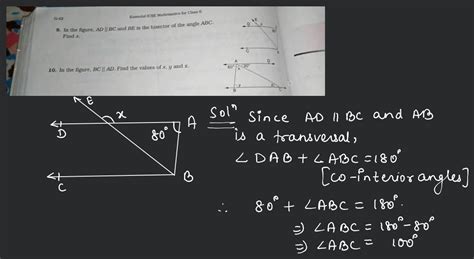 Essential ICSE Mathematics for Class 8
9. In the figure, AD ∥ BC and BE is the bisector of the angle ABC.
Find x.
10. In the figure, BC ∥ AD. Find the values of x, y and z.
E
x
D
A
80°
C
B
Solⁿ Since AD ∥ BC and AB
is a transversal,
∠DAB + ∠ABC = 180°
[co-interior angles]
∴ 80° + ∠ABC = 180°.
⇒ ∠ABC = 180° - 80°
⇒ ∠ABC = 100°